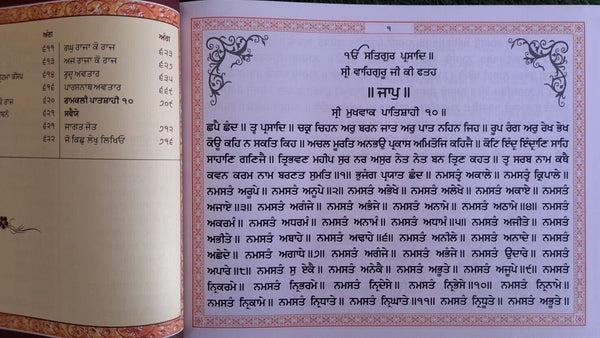 ਅੰਗ ਅੰਗ
੬੧੧ ਰਘੁ ਰਾਜਾ ਕੋ ਰਾਜ ੬੨੩
੬੧੩ ਅਜ ਰਾਜਾ ਕੋ ਰਾਜ
੬੧੪ ਰੁਦ੍ਰ ਅਵਤਾਰ ੬੩੫
੬੧੬ ਪਾਰਸਨਾਥ ਅਵਤਾਰ
੬੨੦ ਰਾਮਕਲੀ ਪਾਤਸ਼ਾਹੀ ੧੦ ੭੦੯
੬੨੧ ਸਵੈਯੇ
੬੨੧ ਜਾਗਤ ਜੋਤ ੭੧੨
੬੨੨ ਜੋ ਕਿਛੁ ਲੇਖੁ ਲਿਖਿਓ ੭੧੬
੧
ੴ ਸਤਿਗੁਰ ਪ੍ਰਸਾਦਿ॥
ਸ੍ਰੀ ਵਾਹਿਗੁਰੂ ਜੀ ਕੀ ਫਤਹ
॥ ਜਾਪੁ ॥
ਸ੍ਰੀ ਮੁਖਵਾਕ ਪਾਤਿਸ਼ਾਹੀ ੧੦॥
ਛਪੈ ਛੰਦ॥ ਤ੍ਵ ਪ੍ਰਸਾਦਿ॥ ਚਕ੍ਰ ਚਿਹਨ ਅਰੁ ਬਰਨ ਜਾਤ ਅਰੁ ਪਾਤ ਨਹਿਨ ਜਿਹ॥ ਰੂਪ ਰੰਗ ਅਰੁ ਰੇਖ ਭੇਖ
ਕੋਊ ਕਹਿ ਨ ਸਕਤਿ ਕਿਹ॥ ਅਚਲ ਮੂਰਤਿ ਅਨਭਉ ਪ੍ਰਕਾਸ ਅਮਿਤੋਜਿ ਕਹਿਜੈ॥ ਕੋਟਿ ਇੰਦ੍ਰ ਇੰਦ੍ਰਾਣਿ ਸਾਹਿ
ਸਾਹਾਣਿ ਗਣਿਜੈ॥ ਤ੍ਰਿਭਵਣ ਮਹੀਪ ਸੁਰ ਨਰ ਅਸੁਰ ਨੇਤ ਨੇਤ ਬਨ ਤ੍ਰਿਣ ਕਹਤ॥ ਤ੍ਵ ਸਰਬ ਨਾਮ ਕਥੈ
ਕਵਨ ਕਰਮ ਨਾਮ ਬਰਣਤ ਸੁਮਤਿ॥੧॥ ਭੁਜੰਗ ਪ੍ਰਯਾਤ ਛੰਦ॥ ਨਮਸਤੰ ਅਕਾਲੇ॥ ਨਮਸਤੰ ਕ੍ਰਿਪਾਲੇ॥
ਨਮਸਤੰ ਅਰੂਪੇ॥ ਨਮਸਤੰ ਅਨੂਪੇ॥੨॥ ਨਮਸਤੰ ਅਭੇਖੇ॥ ਨਮਸਤੰ ਅਲੇਖੇ॥ ਨਮਸਤੰ ਅਕਾਏ॥ ਨਮਸਤੰ
ਅਜਾਏ॥੩॥ ਨਮਸਤੰ ਅਗੰਜੇ॥ ਨਮਸਤੰ ਅਭੰਜੇ॥ ਨਮਸਤੰ ਅਨਾਮੇ॥ ਨਮਸਤੰ ਅਠਾਮੇ॥੪॥ ਨਮਸਤੰ
ਅਕਰਮੰ॥ ਨਮਸਤੰ ਅਧਰਮੰ॥ ਨਮਸਤੰ ਅਨਾਮੰ॥ ਨਮਸਤੰ ਅਧਾਮੰ॥੫॥ ਨਮਸਤੰ ਅਜੀਤੇ॥ ਨਮਸਤੰ
ਅਭੀਤੇ॥ ਨਮਸਤੰ ਅਬਾਹੇ॥ ਨਮਸਤੰ ਅਢਾਹੇ॥੬॥ ਨਮਸਤੰ ਅਨੀਲੇ॥ ਨਮਸਤੰ ਅਨਾਦੇ॥ ਨਮਸਤੰ
ਅਛੇਦੇ॥ ਨਮਸਤੰ ਅਗਾਧੇ॥੭॥ ਨਮਸਤੰ ਅਗੰਜੇ॥ ਨਮਸਤੰ ਅਭੰਜੇ॥ ਨਮਸਤੰ ਉਦਾਰੇ॥ ਨਮਸਤੰ
ਅਪਾਰੇ॥੮॥ ਨਮਸਤੰ ਸੁ ਏਕੈ॥ ਨਮਸਤੰ ਅਨੇਕੈ॥ ਨਮਸਤੰ ਅਭੂਤੇ॥ ਨਮਸਤੰ ਅਜੂਪੇ॥੯॥ ਨਮਸਤੰ
ਨ੍ਰਿਕਰਮੇ॥ ਨਮਸਤੰ ਨ੍ਰਿਭਰਮੇ॥ ਨਮਸਤੰ ਨ੍ਰਿਦੇਸੇ॥ ਨਮਸਤੰ ਨ੍ਰਿਭੇਸੇ॥੧੦॥ ਨਮਸਤੰ ਨ੍ਰਿਨਾਮੇ॥
ਨਮਸਤੰ ਨ੍ਰਿਕਾਮੇ॥ ਨਮਸਤੰ ਨ੍ਰਿਧਾਤੇ॥ ਨਮਸਤੰ ਨ੍ਰਿਘਾਤੇ॥੧੧॥ ਨਮਸਤੰ ਨ੍ਰਿਧੂਤੇ॥ ਨਮਸਤੰ ਅਭੂਤੇ॥